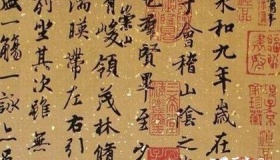 永和九年歲在
于會稽山陰之
羣賢畢至少
有崇山峻領茂林脩
湍暎帶左右引
列坐其次雖無
盛一觴一詠